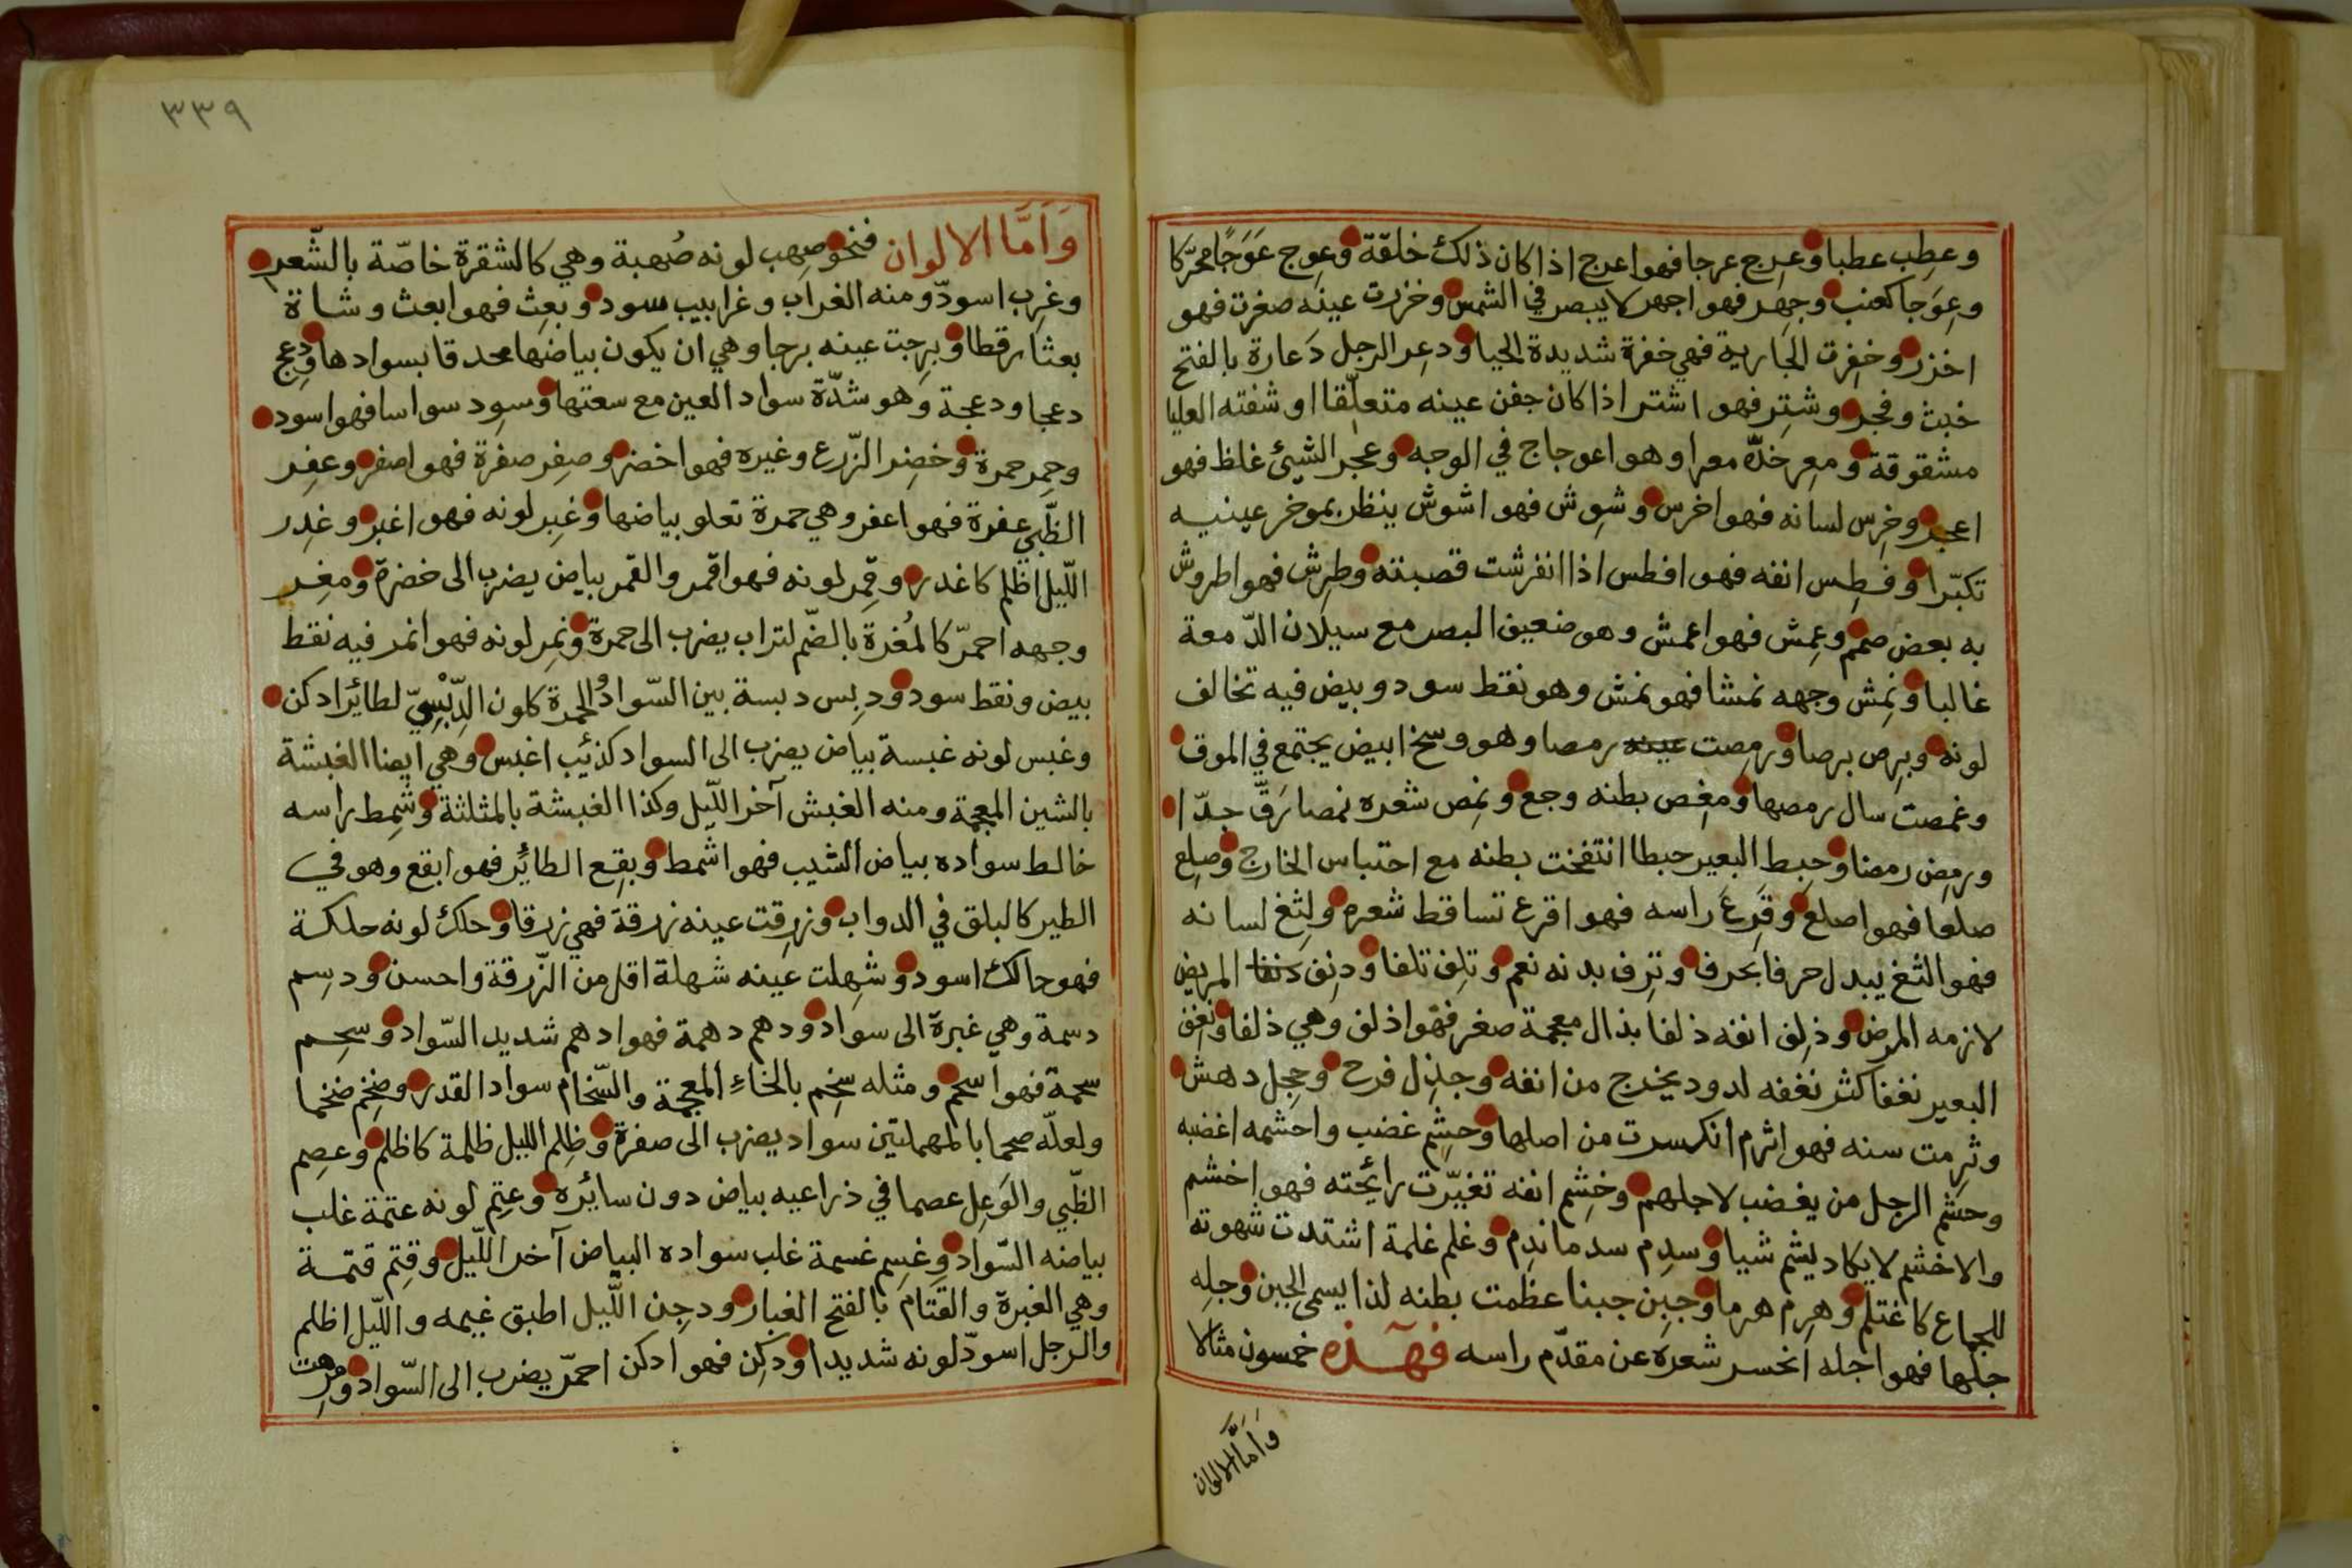 وعطِب عطبا وعرج عرجا فهو اعرج اذا كان ذلك خلقة وعوج عَوَجًا محرّكا
وعِوَجا كعنب وجهِر فهو اجهر لا يبصر في الشمس وخزرت عينه صغرت فهو
اخزر وخفِرت الجارية فهي خفرة شديدة الحيا ودعِر الرجل دَعارة بالفتح
خبث وفجر وشتِر فهو اشتر اذا كان جفن عينه متعلّقا او شفته العليا
مشقوقة ومعِر خدّه معرا وهو اعوجاج في الوجه وعجر الشيئ غلظ فهو
اعجر وخرِس لسانه فهو اخرس وشوِش فهو اشوش ينظر بموخر عينيه
تكبّرا وفطِس انفه فهو افطس اذا انفرشت قصبته وطرِش فهو اطروش
به بعض صمم وعمِش فهو اعمش وهو ضعيف البصر مع سيلان الدّمعة
غالبا ونمِش وجهه نمشا فهو نمش وهو نقط سود وبيض فيه تخالف
لونه وبرِص برصا ورمِصت عينه رمصا وهو وسخ ابيض يجتمع في الموق
وغمصت سال رمصها ومغِص بطنه وجع ونمِص شعره نمصا رَقّ جدّا
ورمِض رمضا وحبِط البعير حبطا انتفخت بطنه مع احتباس الخارج وصلِع
صلعا فهو اصلع وقَرِعَ راسه فهو اقرع تساقط شعره ولثِغ لسانه
فهو الثغ يبدل حرفا بحرف وترِف بدنه نعم وتلِف تلفا ودنِف دنفا المريض
لازمه المرض وذلِف انفه ذلفا بذال معجمة صغر فهو اذلف وهي ذلفا ونغِف
البعير نغفا كثر نغفه لدود يخرج من انفه وجذِل فرح وخجِل دهش
وثرمت سنه فهو اثرم انكسرت من اصلها وحشِم غضب واحشمه اغضبه
وحشَم الرجل من يغضب لاجلهم وخشِم انفه تغيّرت رائحته فهو اخشم
والاخشم لا يكاد يشم شيا وسدِم سدما ندِم وغلم غلمة اشتدت شهوته
للجماع كاغتلم وهرِم هرما وجبِن جبنا عظمت بطنه لذا يسمى الجبن وجلِه
جلها فهو اجله انحسر شعره عن مقدّم راسه فهذه خمسون مثالا
وَاَمَّا الالوان
٣٣٩
وَاَمَّا الالوان فنحو صهِب لونه صُهبة وهي كالشقرة خاصّة بالشّعر
وغرِب اسودّ ومنه الغراب وغرابيب سود وبعِث فهو ابعث وشاة
بعثا رقطا وبرِجت عينه برجا وهي ان يكون بياضها محدقا بسوادها ودعِج
دعجا ودعجة وهو شدّة سواد العين مع سعتها وسوِد سواسا فهو اسود
وحمِر حمرة وخضِر الزّرع وغيره فهو اخضر وصفِر صفرة فهو اصفر وعفِر
الظّبي عفرة فهو اعفر وهي حمرة تعلو بياضها وغبِر لونه فهو اغبر وغدِر
اللّيل اظلم كاغدر وقمِر لونه فهو اقمر والقمر بياض يضرب الى خضرة ومغِر
وجهه احمرّ كالمُغرة بالضّم لتراب يضرب الى حمرة ونمِر لونه فهو انمر فيه نقط
بيض ونقط سود ودبِس دبسة بين السّواد والحمرة كلون الدِّبْسِيّ لطائر ادكن
وغبس لونه غبسة بياض يضرب الى السواد كذئيب اغبس وهي ايضا الغبشة
بالشين المعجمة ومنه الغبش آخر اللّيل وكذا الغبشة بالمثلثة وشمِط راسه
خالط سواده بياض الشيب فهو اشمط وبقِع الطائر فهو ابقع وهو في
الطير كالبلق في الدواب وزرِقت عينه زرقة فهي زرقا وحلك لونه حلكة
فهو حالك اسود وشهِلت عينه شهلة اقل من الزّرقة واحسن ودسِم
دسمة وهي غبرة الى سواد ودهم دهمة فهو ادهم شديد السّواد وسحِم
سحمة فهو اسحم ومثله سخِم بالخاء المعجمة والسّخام سواد القدر وضخم ضخما
ولعلّه صحما بالمهملتين سواد يضرب الى صفرة وظلِم الليل ظلمة كاظلم وعصِم
الظّبي والوَعِل عصما في ذراعيه بياض دون سائره وعتِم لونه عتمة غلب
بياضه السّواد وغسِم غسمة غلب سواده البياض آخر اللّيل وقتِم قتمة
وهي الغبرة والقتام بالفتح الغبار ودجِن اللّيل اطبق غيمه والليل اظلم
والرجل اسودّ لونه شديدا ودكِن فهو ادكن احمرّ يضرب الى السّواد ومرِهت